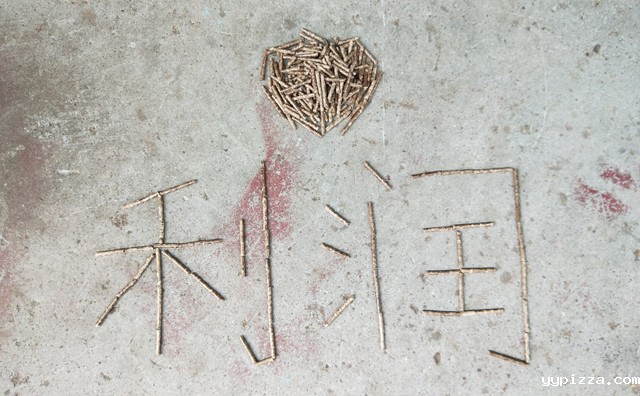 利润
yypizza.com